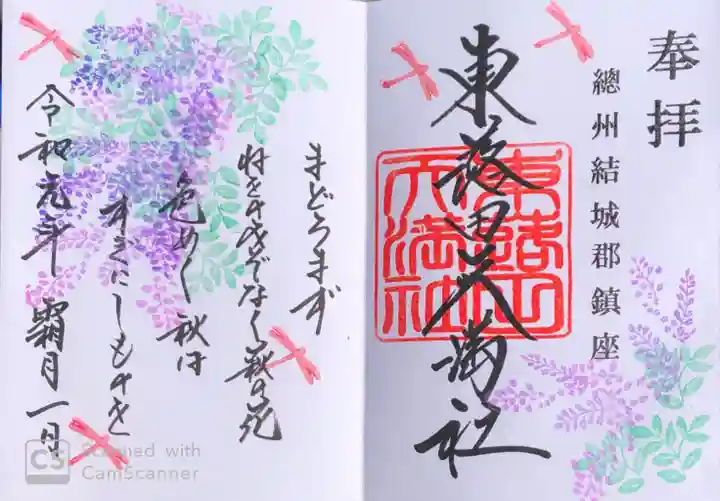 奉拝
總州結城郡鎮座
東蕗田天満社
東蕗田
天満社
まどろまず
ねさめさめでなく萩の花
色めく秋は
すぎにしものを
令和元年 霜月一日
CS Scanned with
CamScanner